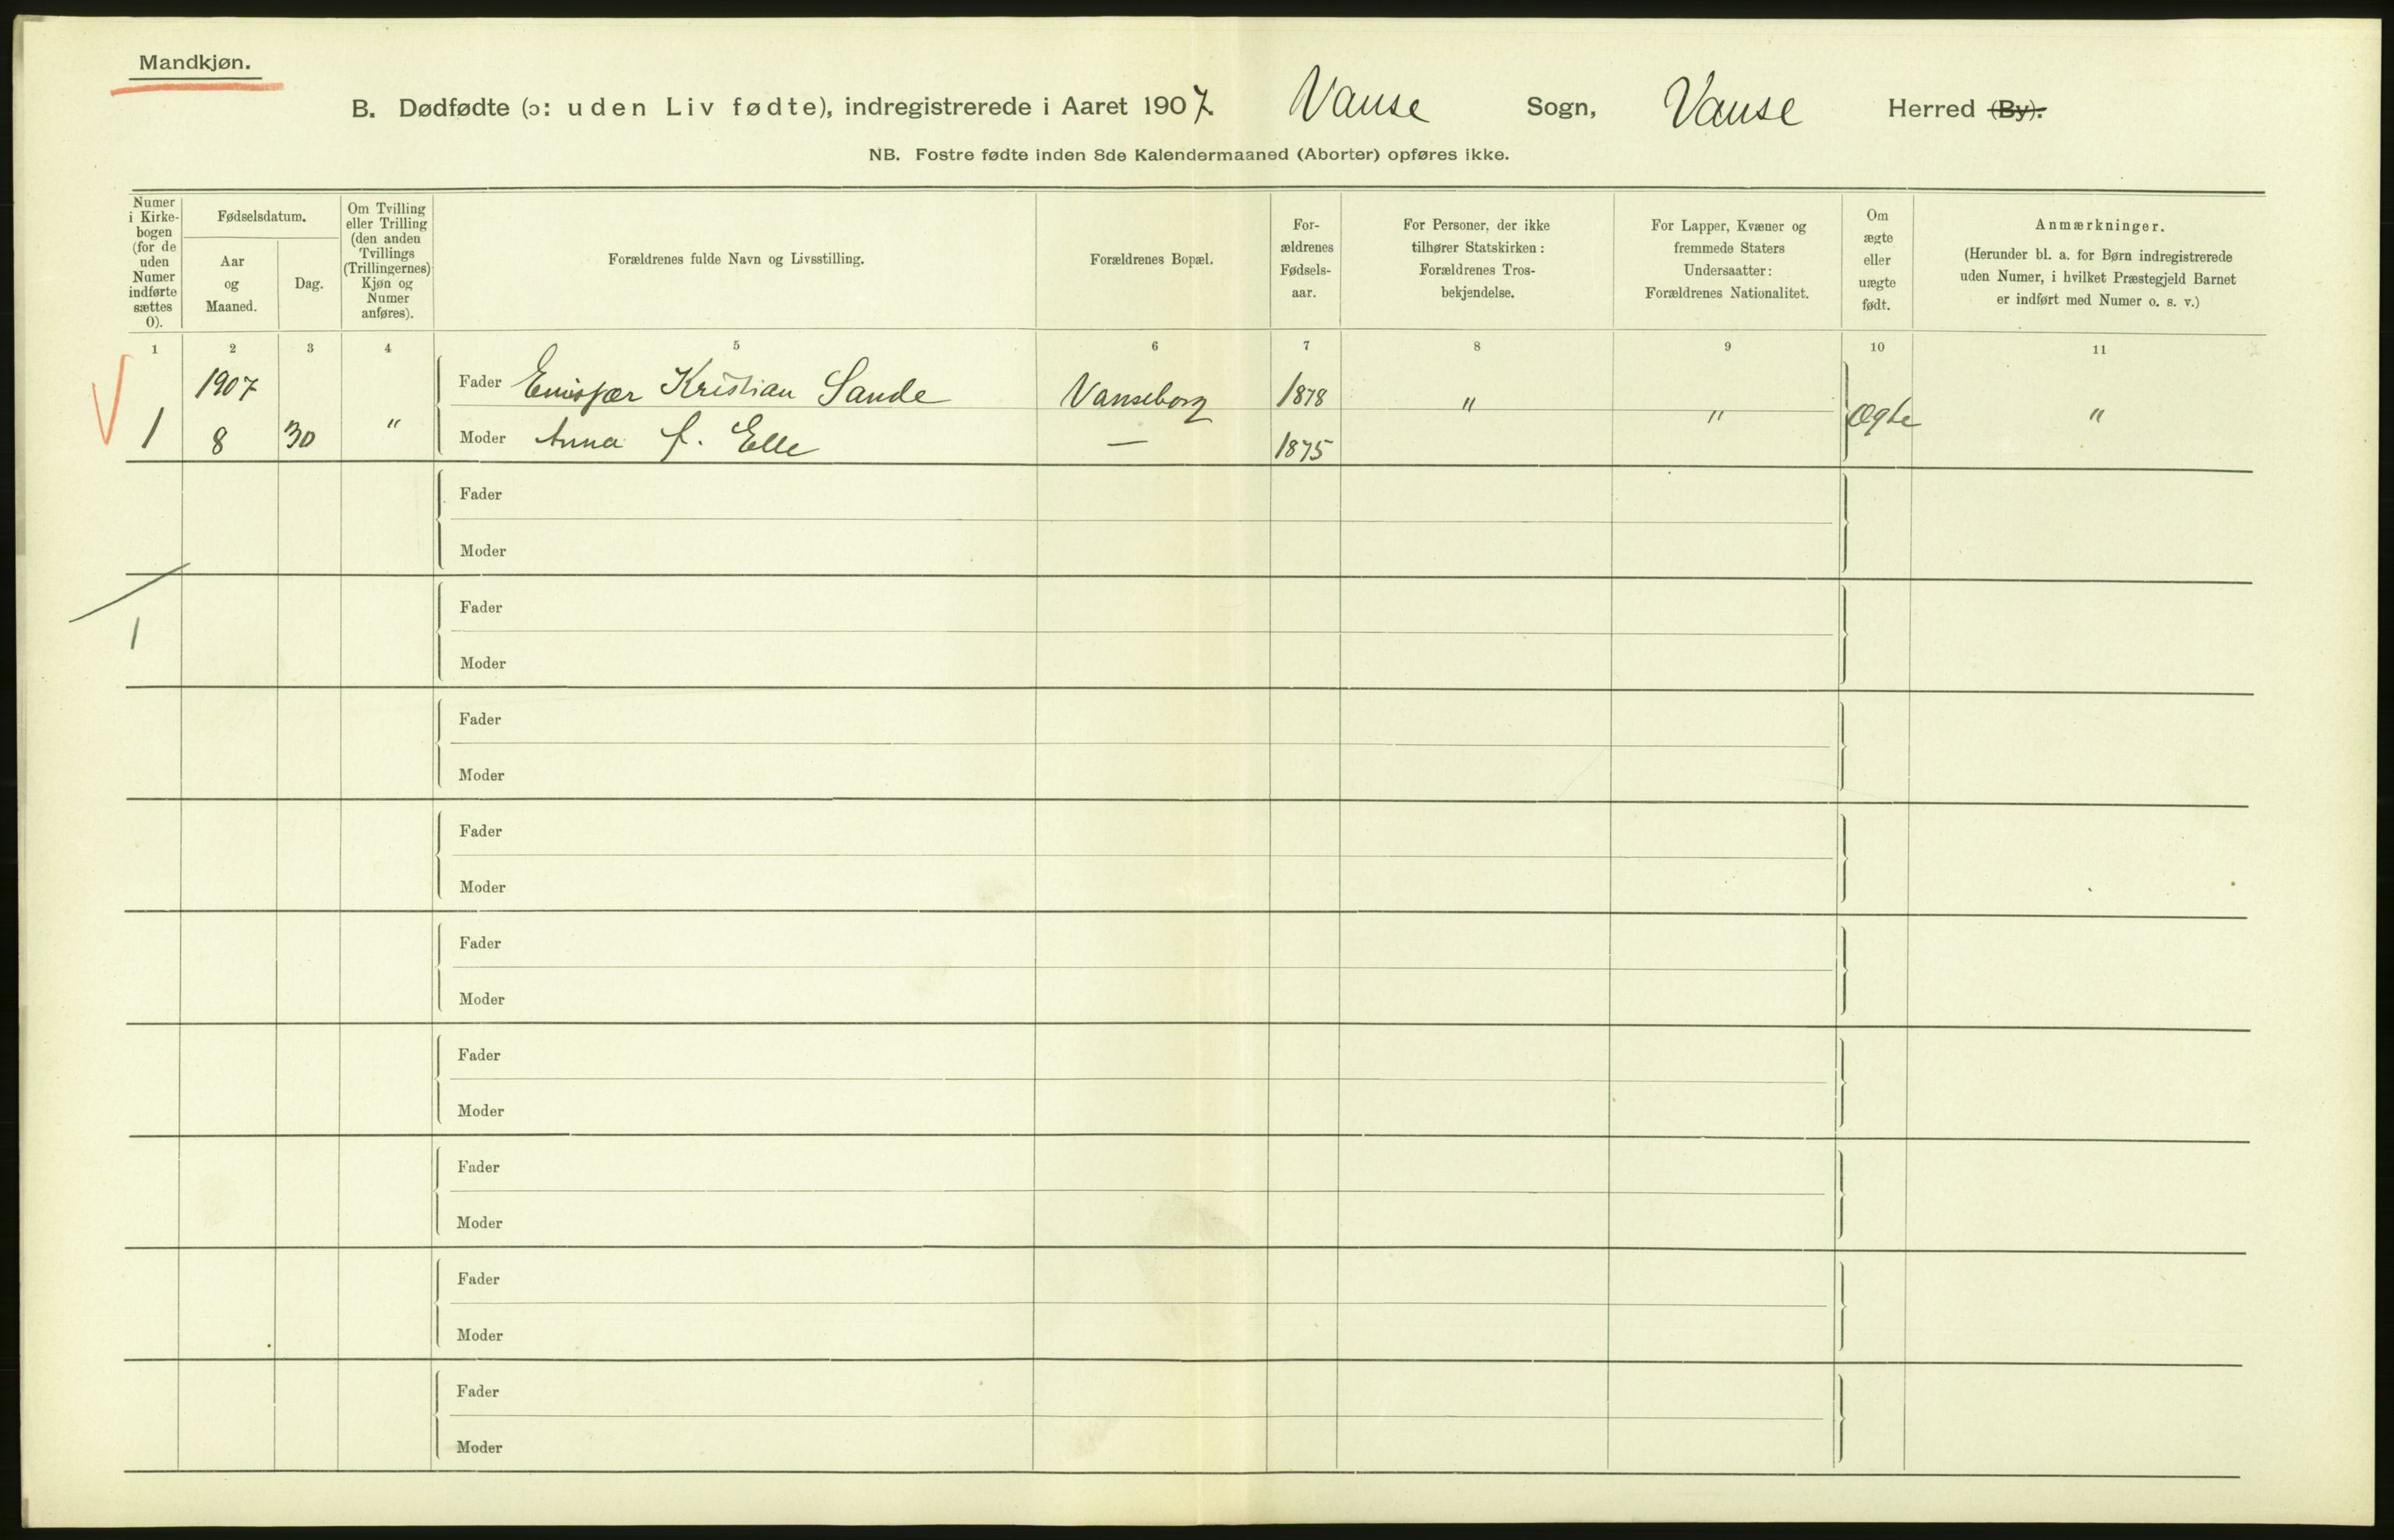 Mandkjøn.
B. Dødfødte (ɔ: uden Liv fødte), indregistrerede i Aaret 1907. Vanse Sogn, Vanse Herred (By).
NB. Fostre fødte inden 8de Kalendermaaned (Aborter) opføres ikke.
Numer i Kirke-bogen (for de uden Numer indførte sættes 0).
Fødselsdatum.
Aar og Maaned.
Dag.
Om Tvilling eller Trilling (den anden Tvillings (Trillingernes) Kjøn og Numer anføres).
Forældrenes fulde Navn og Livsstilling.
Forældrenes Bopæl.
For-ældrenes Fødsels-aar.
For Personer, der ikke tilhører Statskirken: Forældrenes Tros-bekjendelse.
For Lapper, Kvæner og fremmede Staters Undersaatter: Forældrenes Nationalitet.
Om ægte eller uægte født.
Anmærkninger.
(Herunder bl. a. for Børn indregistrerede uden Numer, i hvilket Præstegjeld Barnet er indført med Numer o. s. v.)
1 2 3 4 5 6 7 8 9 10 11
1907 Fader Kristian Sande Vanseborg 1878 " " Ægte "
1 8 30 " Moder Anna f. Elle — 1875
Fader
Moder
1
Fader
Moder
Fader
Moder
Fader
Moder
Fader
Moder
Fader
Moder
Fader
Moder
Fader
Moder
Fader
Moder